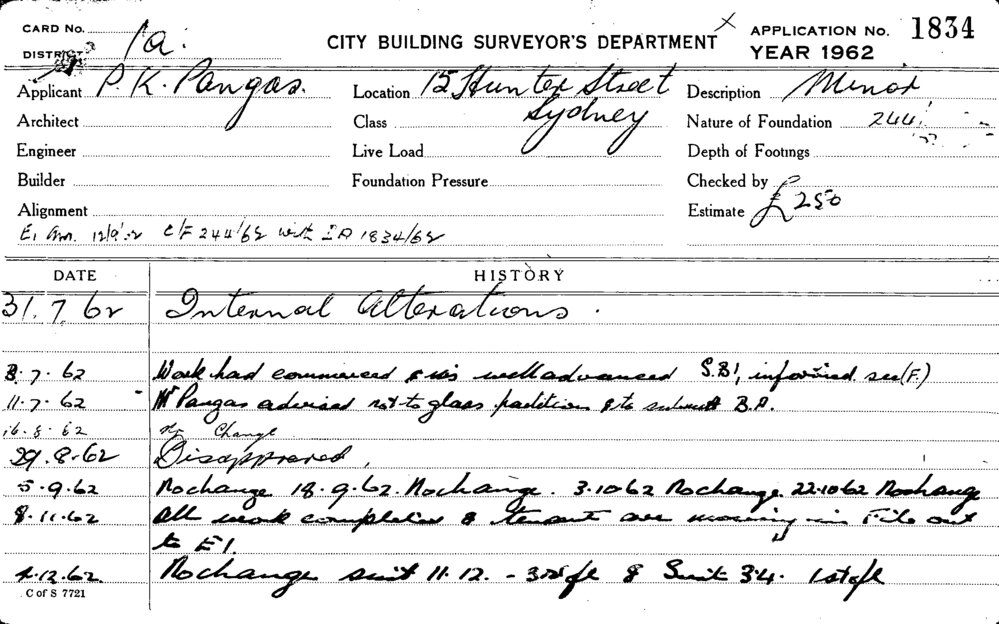 CARD No.
DISTRICT 1a.
CITY BUILDING SURVEYOR'S DEPARTMENT
APPLICATION No. 1834
YEAR 1962
Applicant P. K. Pangas. Location 15 Hunter Street Description Minor
Architect Class Sydney Nature of Foundation 244
Engineer Live Load Depth of Footings
Builder Foundation Pressure Checked by
Alignment Estimate £250
12/9/62 C/F 244/62 with 1834/62
DATE HISTORY
31.7.62 Internal Alterations.
3.7.62 Work had commenced & was well advanced S.B.I. informed sec (F.)
11.7.62 Mr Pangas advised not to glass partition & to submit B.A.
16.8.62 No Change
29.8.62 Disapproved.
5.9.62 Nochange 18.9.62. Nochange. 3.10.62 Nochange 22.10.62 Nochange
8.11.62 All work completed & tenant are moving in File out
to E1.
4.12.62. Nochange suit 11.12. - 3rd fl & Suit 3.4. 1st fl
C of S 7721